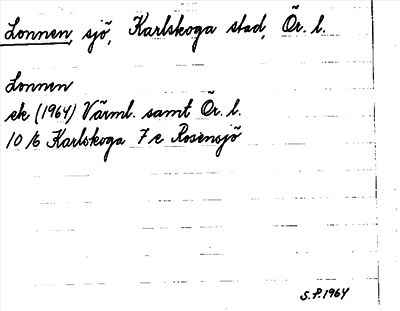 Lonnen, sjö, Karlskoga stad, Ör. l.
Lonnen
ek (1964) Värml. samt Ör. l.
10 b Karlskoga 7 e Rosensjö
S.P. 1964